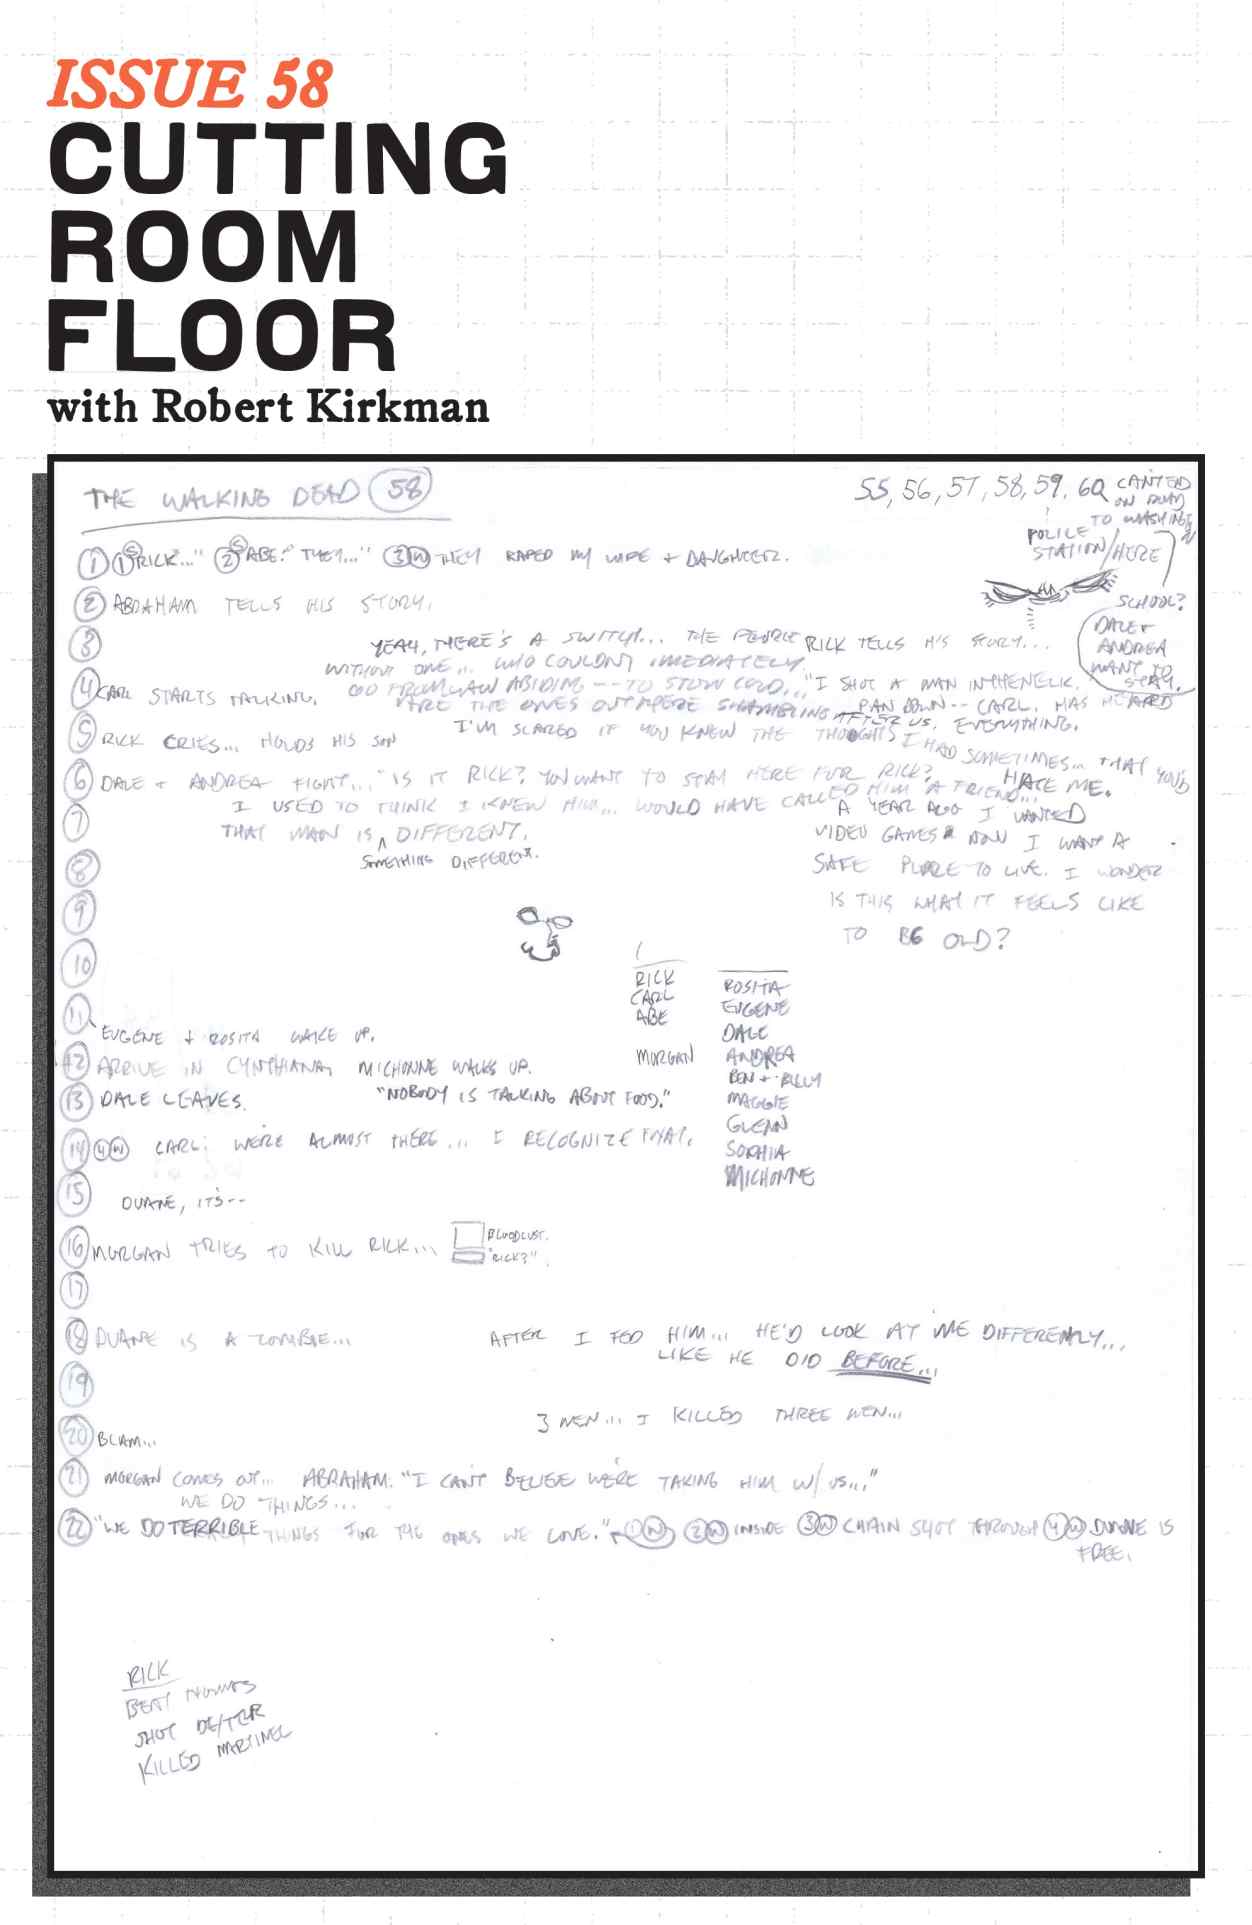 ISSUE 58
CUTTING
ROOM
FLOOR
with Robert Kirkman
THE WALKING DEAD 58
55, 56, 57, 58, 59, 60
CAN'T END
ON ROAD
TO WASHING
POLICE
STATION/HERE
SCHOOL?
DALE +
ANDREA
WANT TO
STAY.
1 1 S RICK..." 2 S ABE: THEY..." 3 W THEY RAPED MY WIFE + DAUGHTER.
2 ABRAHAM TELLS HIS STORY.
3
YEAH, THERE'S A SWITCH... THE PEOPLE
WITHOUT ONE... WHO COULDN'T IMEDIATELY
GO FROM LAW ABIDING -- TO STONE COLD...
ARE THE ONES OUT THERE SHAMBLING AFTER US.
RICK TELLS HIS STORY...
"I SHOT A MAN IN THE NECK.
PAN DOWN -- CARL. HAS HEARD
EVERYTHING.
4 CARL STARTS TALKING.
I'M SCARED IF YOU KNEW THE THOUGHTS I HAD SOMETIMES... THAT YOU'D
HATE ME.
5 RICK CRIES... HOLDS HIS SON
6 DALE + ANDREA FIGHT... "IS IT RICK? YOU WANT TO STAY HERE FOR RICK?
I USED TO THINK I KNEW HIM... WOULD HAVE CALLED HIM A FRIEND...
7
THAT MAN IS DIFFERENT.
SOMETHING DIFFERENT.
A YEAR AGO I WANTED
VIDEO GAMES NOW I WANT A
SAFE PLACE TO LIVE. I WONDER
IS THIS WHAT IT FEELS LIKE
TO BE OLD?
8
9
10
RICK
CARL
ABE
MORGAN
ROSITA
EUGENE
DALE
ANDREA
BEN + BILLY
MAGGIE
GLENN
SOPHIA
MICHONNE
11 EUGENE + ROSITA WAKE UP.
12 ARRIVE IN CYNTHIANA, MICHONNE WALKS UP.
13 DALE LEAVES. "NOBODY IS TALKING ABOUT FOOD."
14 4 W CARL: WE'RE ALMOST THERE... I RECOGNIZE THAT.
15 DUANE, IT'S --
16 MORGAN TRIES TO KILL RICK...
BLOODLUST.
"RICK?"
17
18 DUANE IS A ZOMBIE...
AFTER I FED HIM... HE'D LOOK AT ME DIFFERENTLY...
LIKE HE DID BEFORE...
19
3 MEN... I KILLED THREE MEN...
20 BLAM...
21 MORGAN COMES OUT... ABRAHAM: "I CAN'T BELIEVE WE'RE TAKING HIM W/ US..."
WE DO THINGS...
22 "WE DO TERRIBLE THINGS FOR THE ONES WE LOVE." 1 W 2 W INSIDE 3 W CHAIN SHOT THROUGH 4 W DUANE IS
FREE.
RICK
BEAT THOMAS
SHOT DEXTER
KILLED MARTINEZ